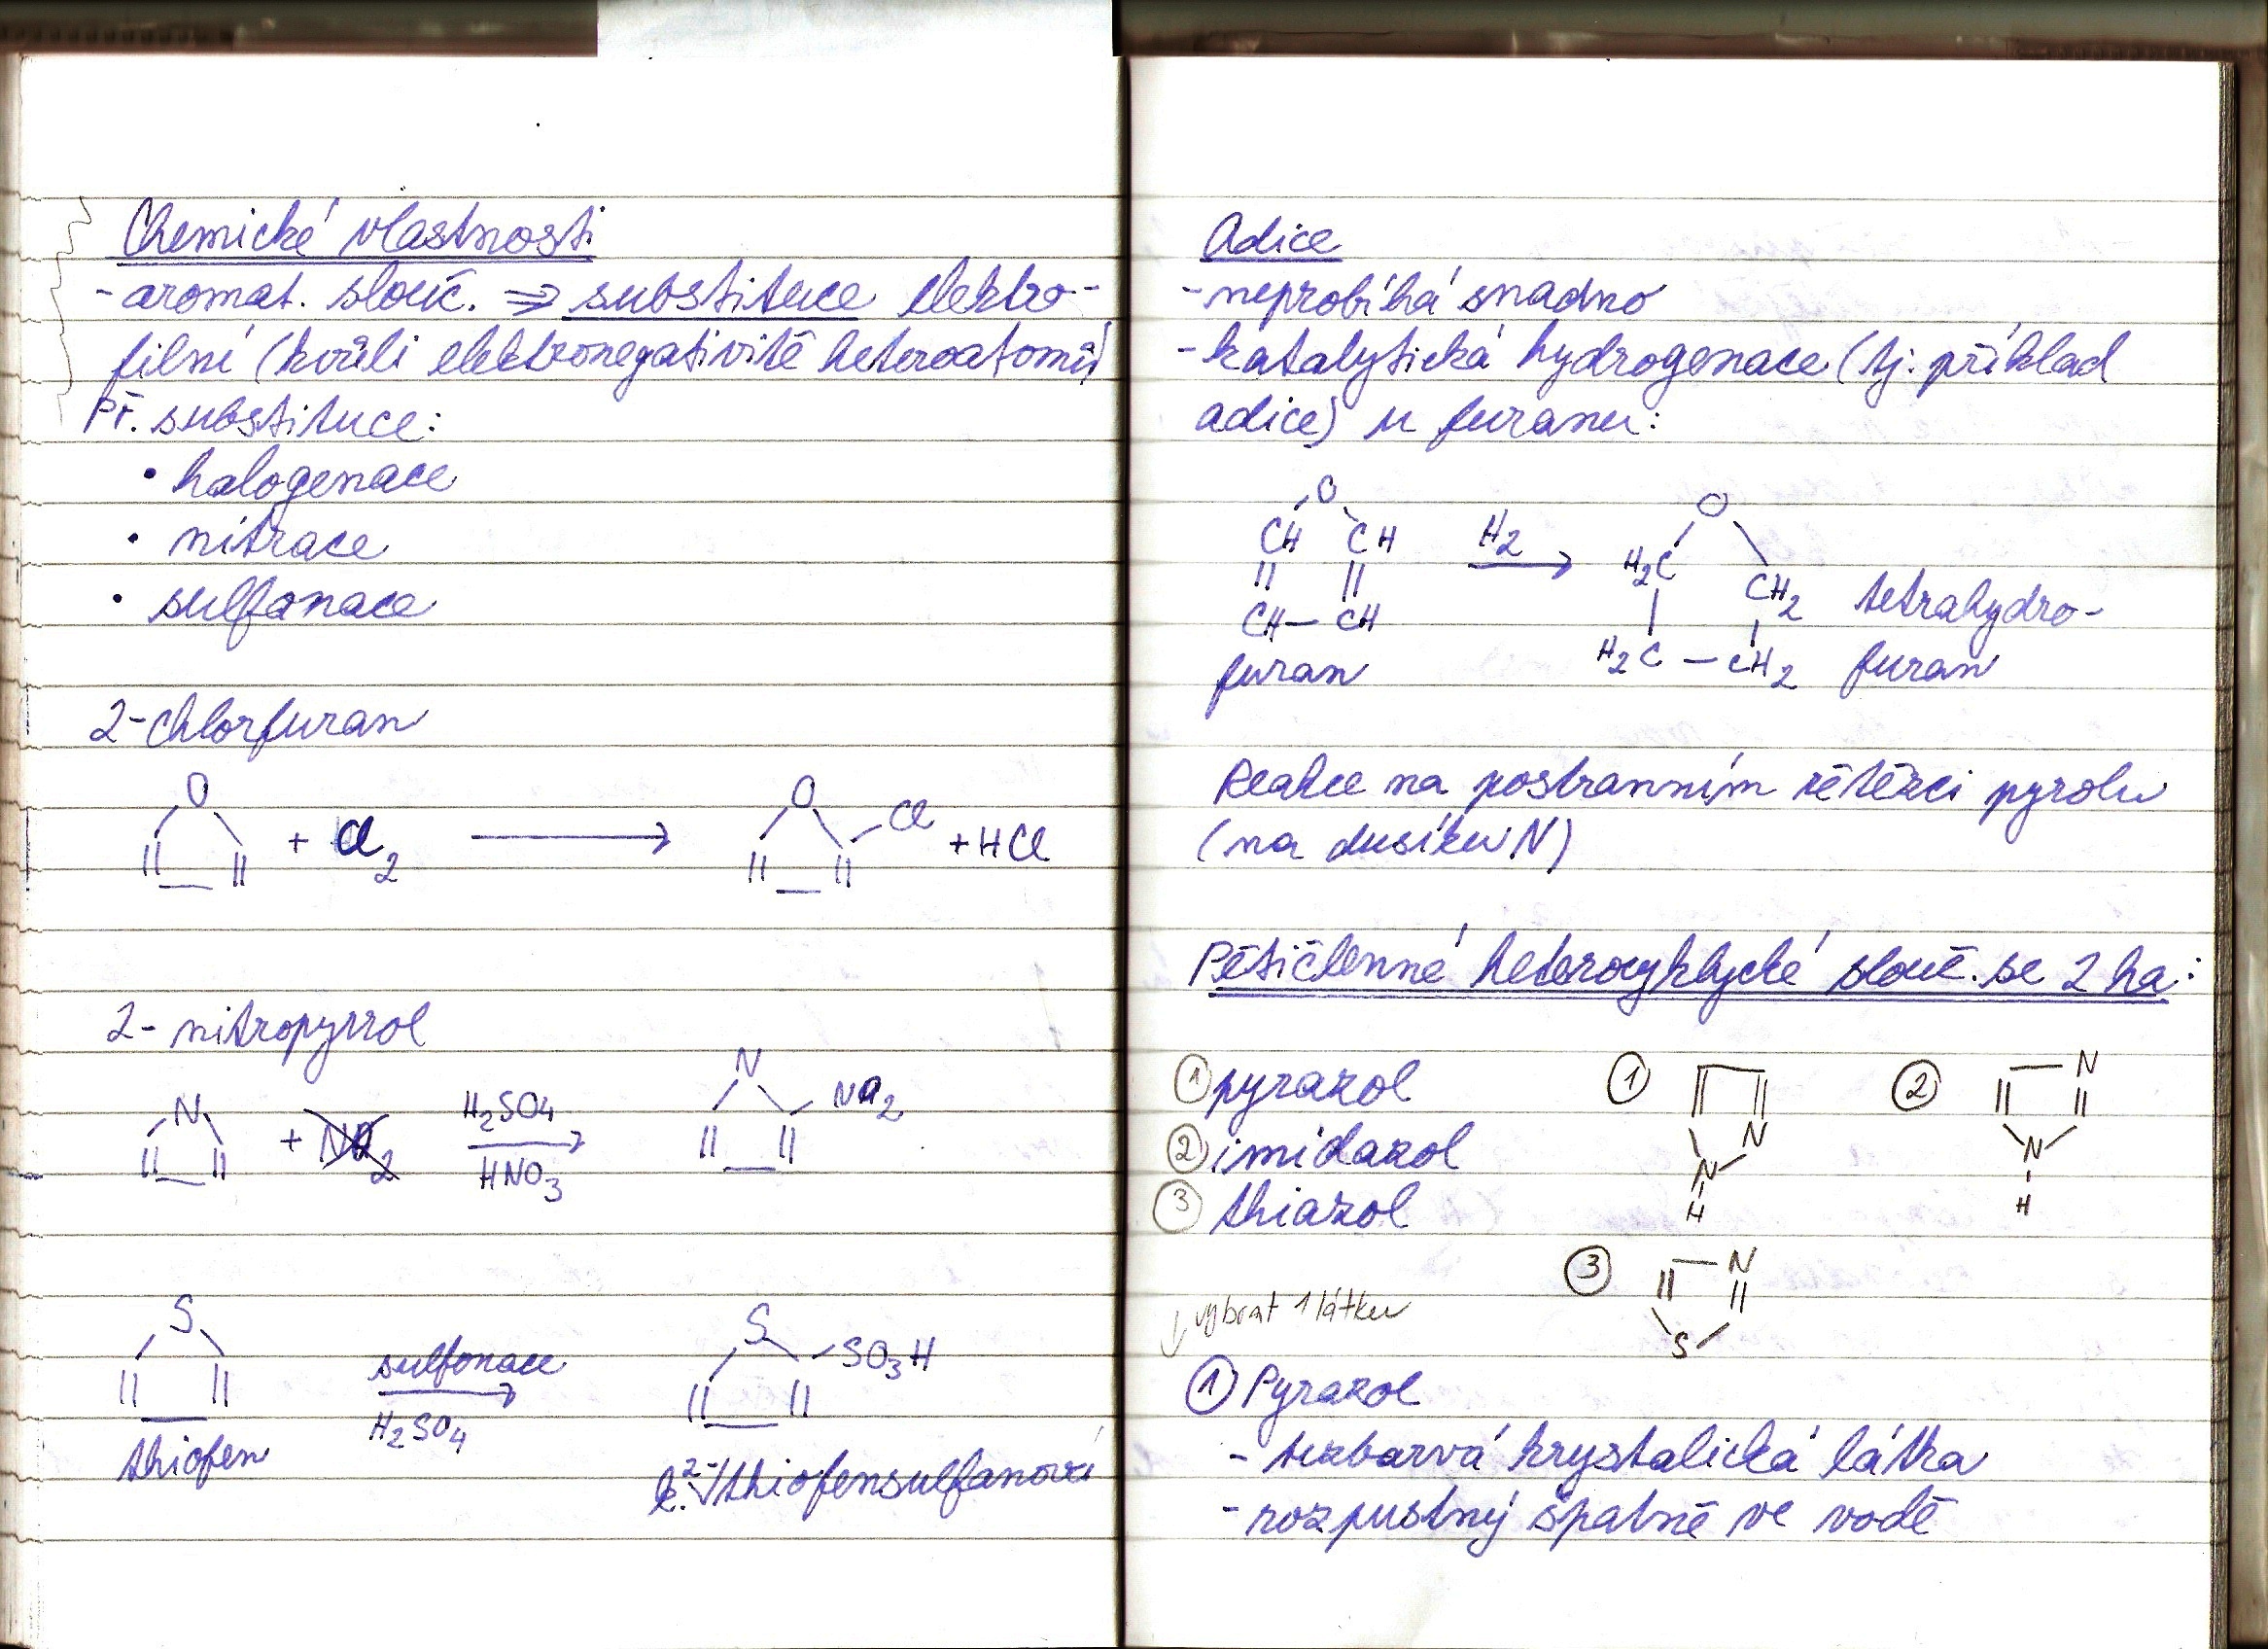 Chemické vlastnosti
- aromat. slouč. => substituce elektro-
filní (kvůli elektronegativitě heteroatomů)
Př. substituce:
• halogenace
• nitrace
• sulfonace
2-chlorfuran
O
+ Cl2
O
Cl
+ HCl
2-nitropyrrol
N
+
H2SO4
HNO3
N
NO2
S
sulfonace
H2SO4
S
SO3H
thiofen
k. 2-thiofensulfanová
Adice
- neprobíhá snadno
- katalytická hydrogenace (tj. příklad
adice) u furanu:
O
CH CH
CH — CH
furan
H2
O
H2C CH2
H2C — CH2
tetrahydro-
furan
Reakce na postranním řětězci pyrolu
(na dusíku N)
Pětičlenné heterocyklycké slouč. se 2 ha:
① pyrazol
② imidazol
③ thiazol
①
N
N
H
②
N
N
H
③
N
S
vybrat 1 látku
① Pyrazol
- bezbarvá krystalická látka
- rozpustný špatně ve vodě